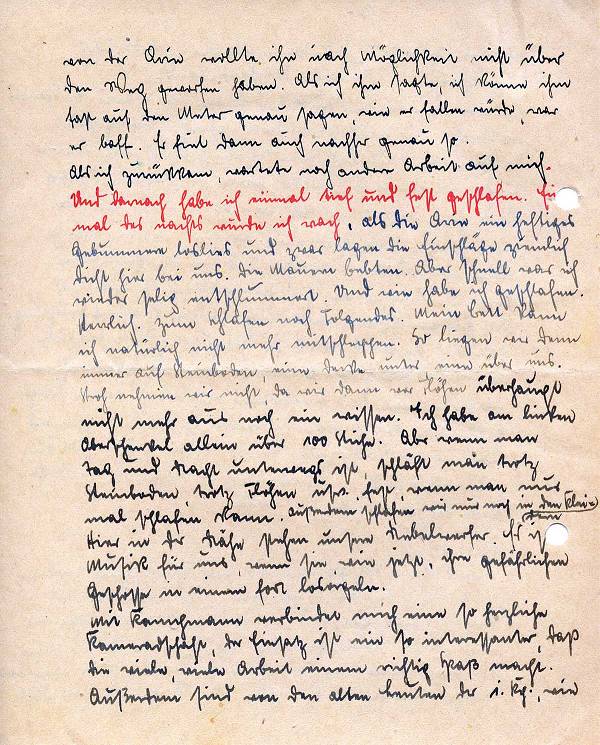 von der Arin wollte ihn nach Möglichkeit nicht über
den Weg geworfen haben. Als ich ihm sagte, ich könne ihm
fast auf den Meter genau sagen, wie er fallen würde, war
er baff. Er fiel dann auch nachher genau so.
Als ich zurückkam, wartete noch andere Arbeit auf mich.
Und danach habe ich einmal tief und fest geschlafen. Ein
mal des nachts wurde ich wach, als die ein heftiges
Gebummere loslies und zwar lagen die Einschläge ziemlich
dicht hier bei uns. Die Mauern bebten. Aber schnell war ich
wieder selig entschlummert. Und wie habe ich geschlafen.
Herrlich. Zum Schlafen noch folgendes. Mein Bett kann
ich natürlich nicht mehr mitschleppen. So liegen wir denn
immer auf Steinboden, eine Decke unter eine über uns.
Stroh nehmen wir nicht, da wir dann vor Flöhen überhaupt
nicht mehr aus noch ein wissen. Ich habe am linken
Oberschenkel allein über 100 Stiche. Aber wenn man
Tag und Nacht unterwegs ist, schläft man trotz
Steinboden, trotz Flöhen usw. fest, wenn man nur
mal schlafen kann. Außerdem schlafen wir nur noch in den Klei=
dern
Hier in der Nähe stehen unsere Nebelwerfer. Es ist
Musik für uns, wenn sie, wie jetzt, ihre gefährlichen
Geschosse in einem fort losorgeln.
Mit verbindet mich eine so herzliche
Kameradschaft, der Einsatz ist ein so interessanter, daß
die viele, viele Arbeit einem richtig Spaß macht.
Außerdem sind von den alten Leuten der 1. Kp., wie